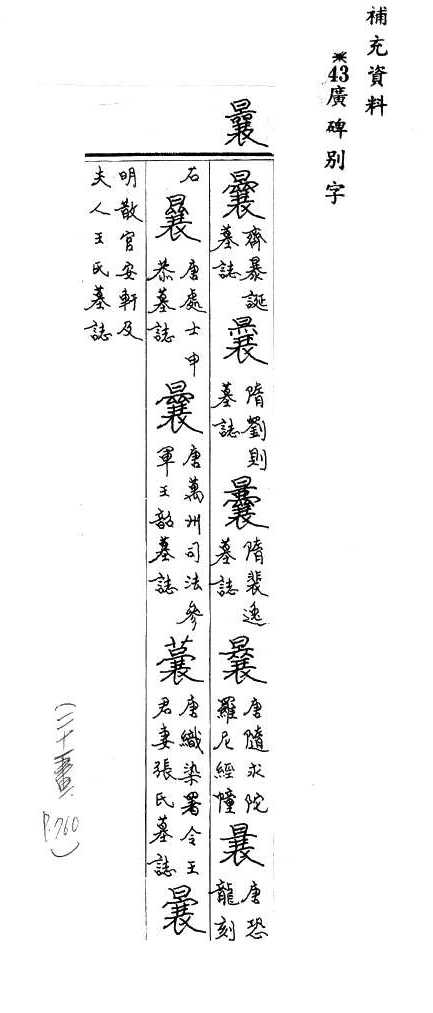 補充資料
※43廣碑別字
曩
曩 齊暴誕墓誌 曩 隋劉則墓誌 曩 隋裴逸墓誌 曩 唐隨求陀羅尼經幢 曩 唐恐龍刻
石 曩 唐處士申恭墓誌 曩 唐萬州司法參軍王韶墓誌 曩 唐織染署令王君妻張氏墓誌 曩
明散官安軒及夫人王氏墓誌
(二十一畫 P.760)